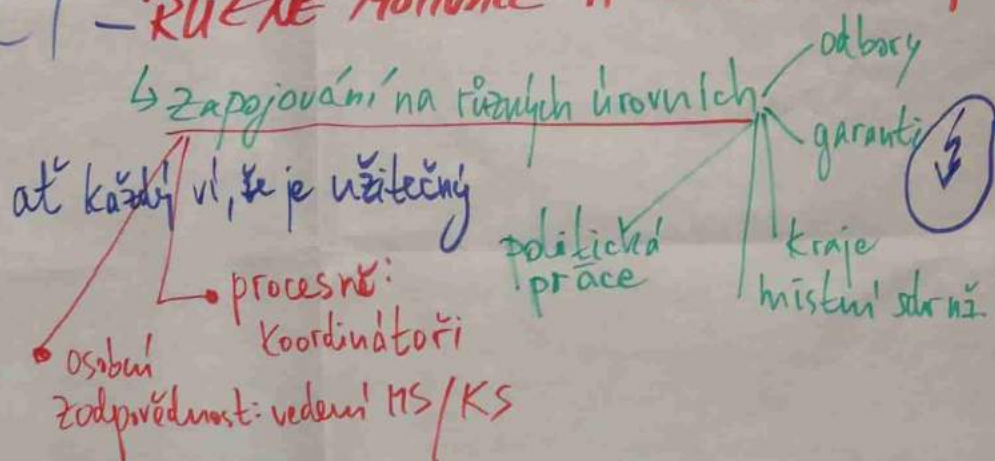 – RŮZNÉ MOTIVACE
↳ zapojování na různých úrovních
odbory
garanti
ať každý ví, že je užitečný
politická
práce
kraje
místní sdruž.
• procesně:
koordinátoři
• osobní
zodpovědnost: vedení MS/KS